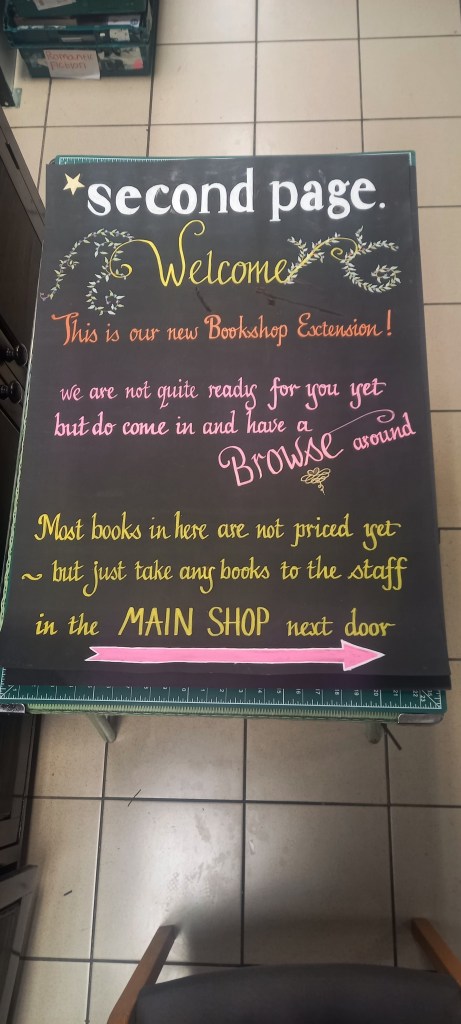 ROMANTIC
FICTION
second page.
Welcome
This is our new Bookshop Extension!
we are not quite ready for you yet
but do come in and have a
Browse around
Most books in here are not priced yet
~ but just take any books to the staff
in the MAIN SHOP next door